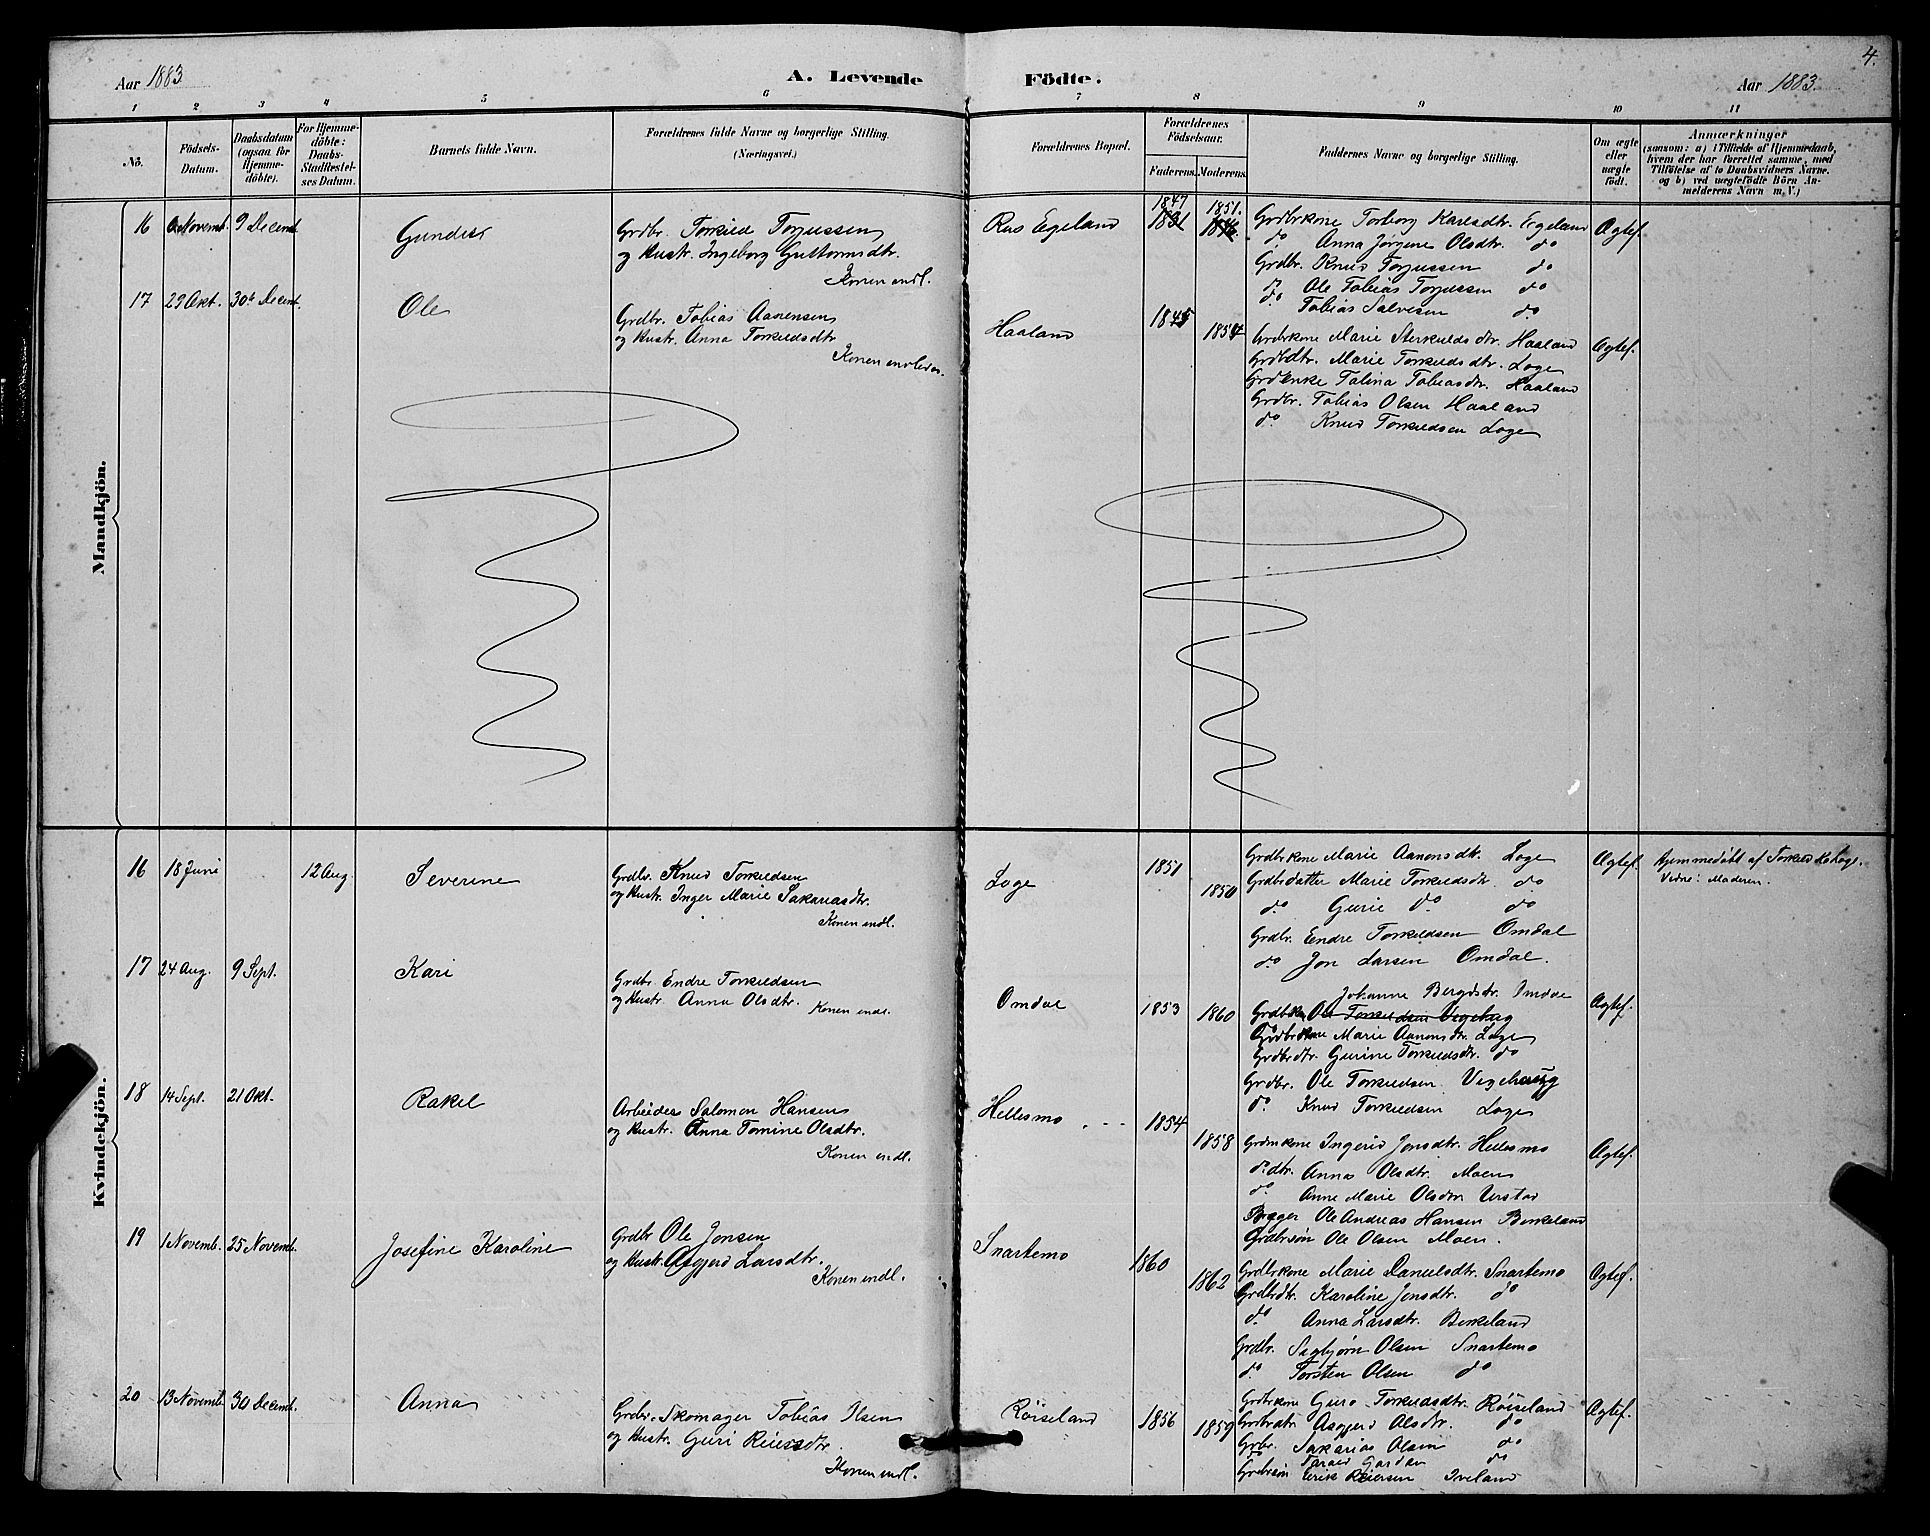 4.
Aar 1883
A. Levende Födte.
Aar 1883.
1 2 3 4 5 6 7 8 9 10 11
No.
Födsels-Datum.
Daabsdatum (ogsaa for Hjemmedöbte).
For Hjemmedöbte: Daabs-Stadfæstelses Datum.
Barnets fulde Navn.
Forældrenes fulde Navne og borgerlige Stilling.
(Næringsvei.)
Forældrenes Bopæl.
Forældrenes Födselsaar.
Faderens. Moderens.
Faddernes Navne og borgerlige Stilling.
Om ægte eller uægte födt.
Anmærkninger
(saasom: a) i Tilfælde af Hjemmedaab, hvem der har forrettet samme, med Tilföielse af to Daabsvidners Navne. og b) ved uægtefödte Börn Anmelderens Navn m. V.)
Mandkjön.
16 6 Novemb. 9 Decemb. Gunder
Grdbr. Torkild Torjussen
og Hustr. Ingeborg Guttormsdtr.
Konen indl.
Ras Egeland
1847 1851.
1831 1846
Grdbrkone Torborg Karlsdtr. Eegeland
do Anna Jørgine Olsdtr. do
Grdbr. Knud Torjussen do
do Ole Tobias Torjussen do
do Tobias Salvesen do
Ægtef.
17 29 Okt. 30te Decemb. Ole
Grdbr. Tobias Aanensen
og Hustr. Anna Torkildsdtr
Konen indledes.
Haaland
1845 1854
Grdbrkone Marie Sterkildsdtr. Haaland
Grdbdtr. Marie Torkildsdtr. Loge
Grdenke Talina Tobiasdtr. Haaland
Grdbr. Tobias Olsen Haaland
do Knud Torkildsen Loge
Ægtef.
Kvindekjön.
16 18 Juni 12 Aug. Severine
Grdbr. Knud Torkildsen
og Hustr. Inger Marie Sakariasdtr.
Konen indl.
Loge
1851 1850
Grdbrkone Marie Aanonsdtr. Loge
Grdbrdatter Marie Torkildsdtr. do
do Gurie do do
Grdbr. Endre Torkildsen Omdal
do Jon Larsen Omdal.
Ægtef.
Hjemmedöbt af Torkild K. Loge.
Vidne: Moderen.
17 24 Aug. 9 Sept. Kari
Grdbr. Endre Torkildsen
og Hustr. Anna Olsdtr.
Konen indl.
Omdal
1853 1860
Johanne Bergdtr. Omdal
Grdbrkn Ole Torkildsen Vegehaug
Grdbrkone Marie Aanonsdtr. Loge
Grdbrdtr. Gurine Torkildsdtr. do
Grdbr. Ole Torkildsen Vigehaug
do Knud Torkildsen Loge
Ægtef.
18 14 Sept. 21 Okt. Rakel
Arbeider Salomon Hansen
og Hustr. Anna Tomine Olsdtr.
Konen indl.
Hellesmo
1854 1858
Grdmkone Ingerid Jonsdtr. Hellesmo
do dtr. Anna Olsdtr. Moen
do Anne Marie Olsdtr Urstad
Bygger Ole Andreas Hansen Birkeland
Grdbrsön Ole Olsen Moen.
Ægtef.
19 1 Novemb. 25 Novemb. Josefine Karoline
Grdbr Ole Jonsen
og Hustr. Asgjerd Larsdtr.
Konen indl.
Snartemo
1860 1862
Grdbrkone Marie Danielsdtr. Snartemo
Grdbrdtr. Karoline Jonsdtr. do
do Anna Larsdtr. Birkeland
Grdbr. Sigbjørn Olsen Snartemo
do Torsten Olsen do
Ægtef.
20 13 Novemb. 30 Decemb. Anna
Grdbr. Skomager Tobias Olsen
og Hustr. Guri Reiersdtr.
Konen indl.
Röiseland
1856 1859
Grdbrkone Guro Torkildsdtr. Röiseland
Grdbrdtr. Asgjerd Olsdtr. do
Grbr. Sakarias Olsen do
do Tarald Gordan do
Grdbrsön Eerik Reiersen Iveland
Ægtef.